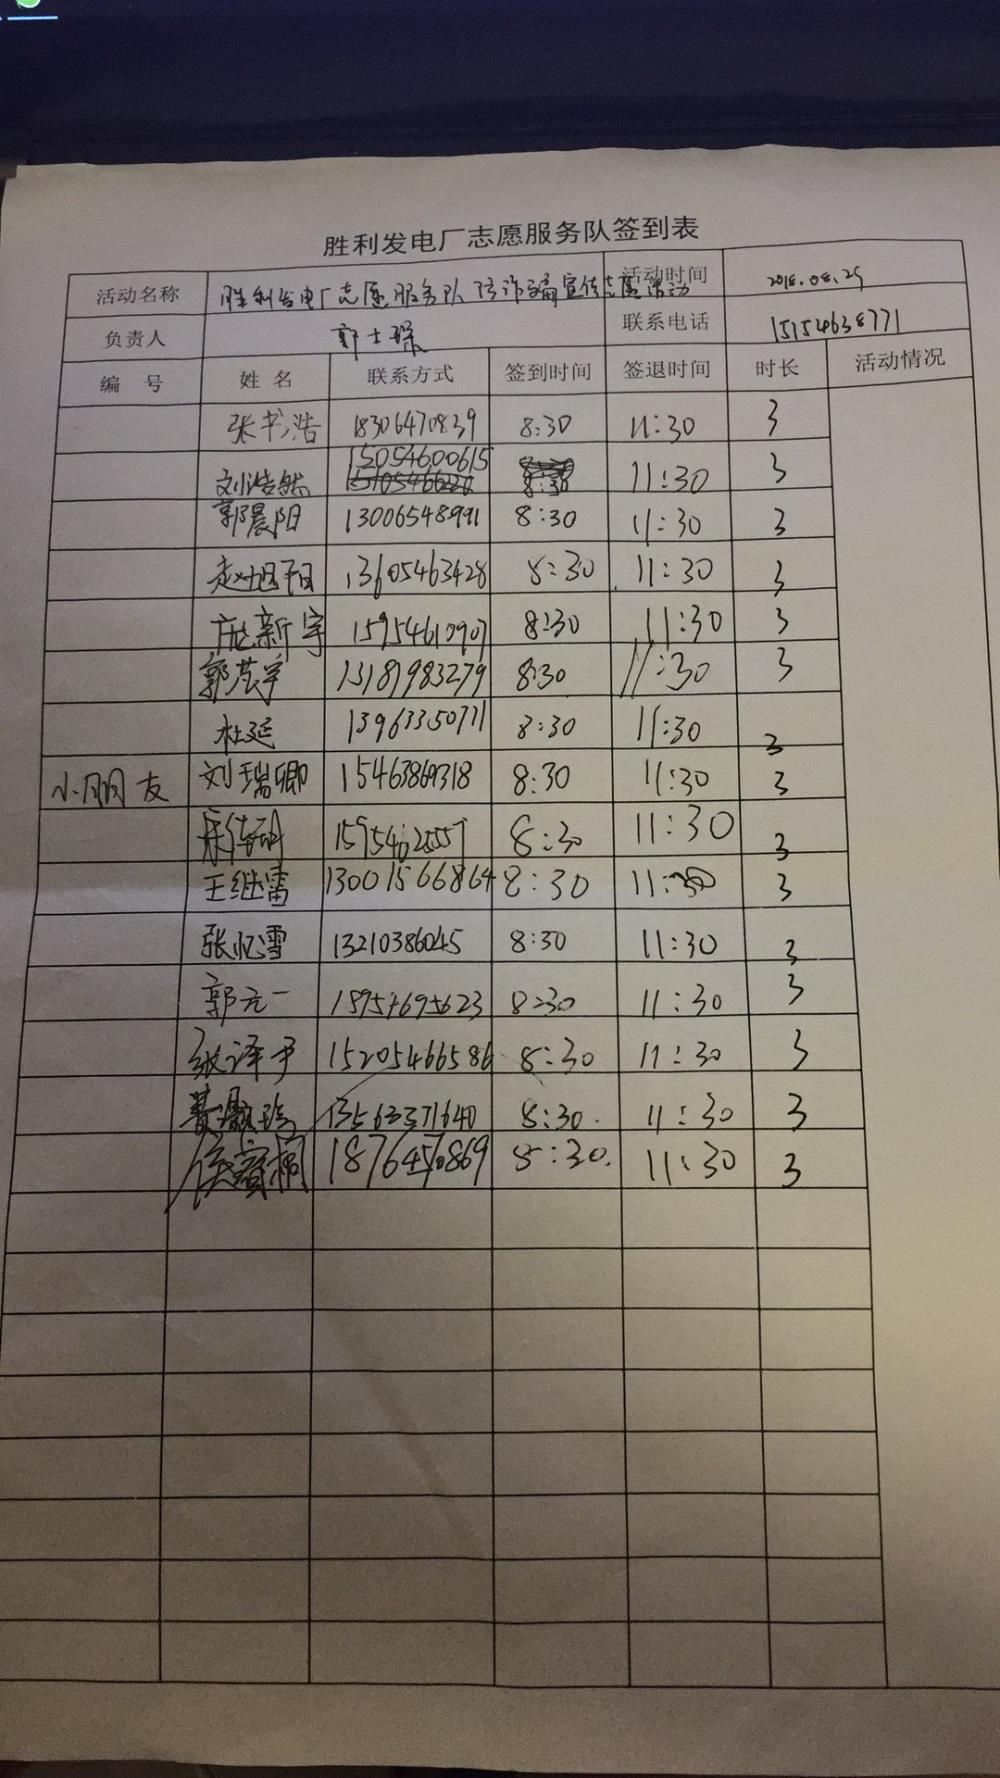 胜利发电厂志愿服务队签到表
活动名称 胜利发电厂志愿服务队防诈骗宣传志愿活动 活动时间 2018.08.25
负责人 郭士琛 联系电话 15154638771
编 号 姓 名 联系方式 签到时间 签退时间 时长 活动情况
张书浩 18306470839 8:30 11:30 3
刘浩然 15054600615 11:30 3
郭晨阳 13006548991 8:30 11:30 3
赵旭阳 13605463428 8:30 11:30 3
庞新宇 15954610907 8:30 11:30 3
郭芸宇 15181983279 8:30 11:30 3
杜延 13963350771 8:30 11:30 3
小朋友 刘瑞卿 15463869318 8:30 11:30 3
8:30 11:30 3
王继雷 13001566864 8:30 11:30 3
张忆雪 13210386045 8:30 11:30 3
郭元一 18954695623 8:30 11:30 3
张译予 15205466586 8:30 11:30 3
13563371640 8:30. 11:30 3
侯睿桐 8:30. 11:30 3